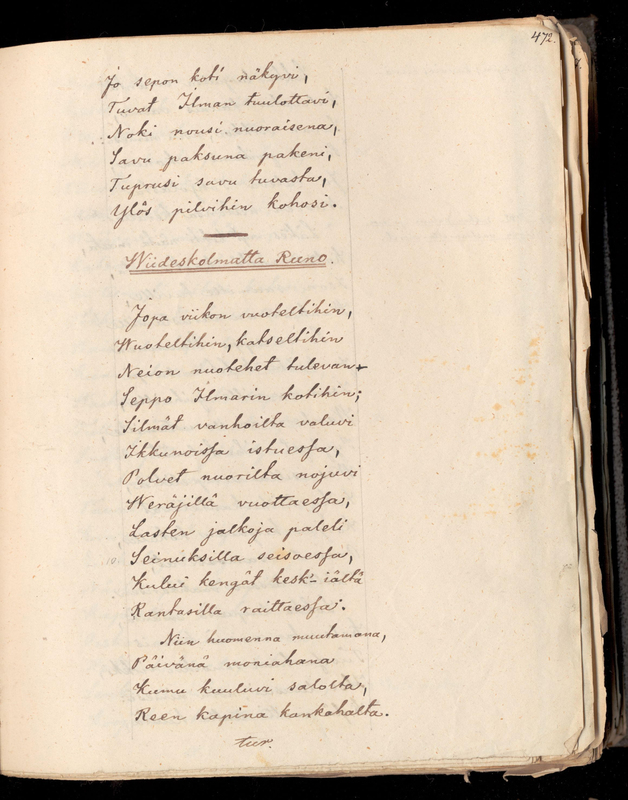 472.
Jo sepon koti näkyvi,
Tuvat Ilman tuulottavi,
Noki nousi nuoraisena,
Savu paksuna pakeni,
Tuprusi savu tuvasta,
Ylös pilvihin kohosi.
Wiideskolmatta Runo.
Jopa viikon vuoteltihin,
Wuoteltihin, katseltihin
Neion nuotehet tulevan
Seppo Ilmarin kotihin;
Silmät vanhoilta valuvi
Ikkunoissa istuessa,
Polvet nuorilta nojuvi
Weräjillä vuottaessa,
Lasten jalkoja paleli
10. Seinuksilla seisoessa,
Kului kengät kesk'-iältä
Rantasilla raittaessa.
Niin huomenna muutamana,
Päivänä moniahana
Kumu kuuluvi salolta,
Reen kapina kankahalta.